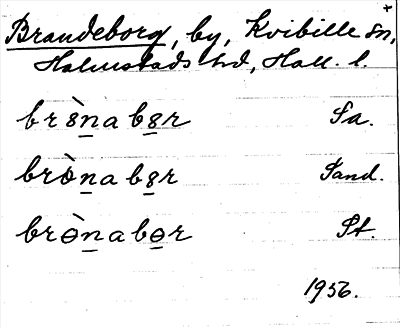 Brandeborg, by, Kvibille sn,
Halmstads hd, Hall. l.
brɵ̀naber Sa.
brɵ̀naber Sand.
brɵ̀nabɵr St.
1956.